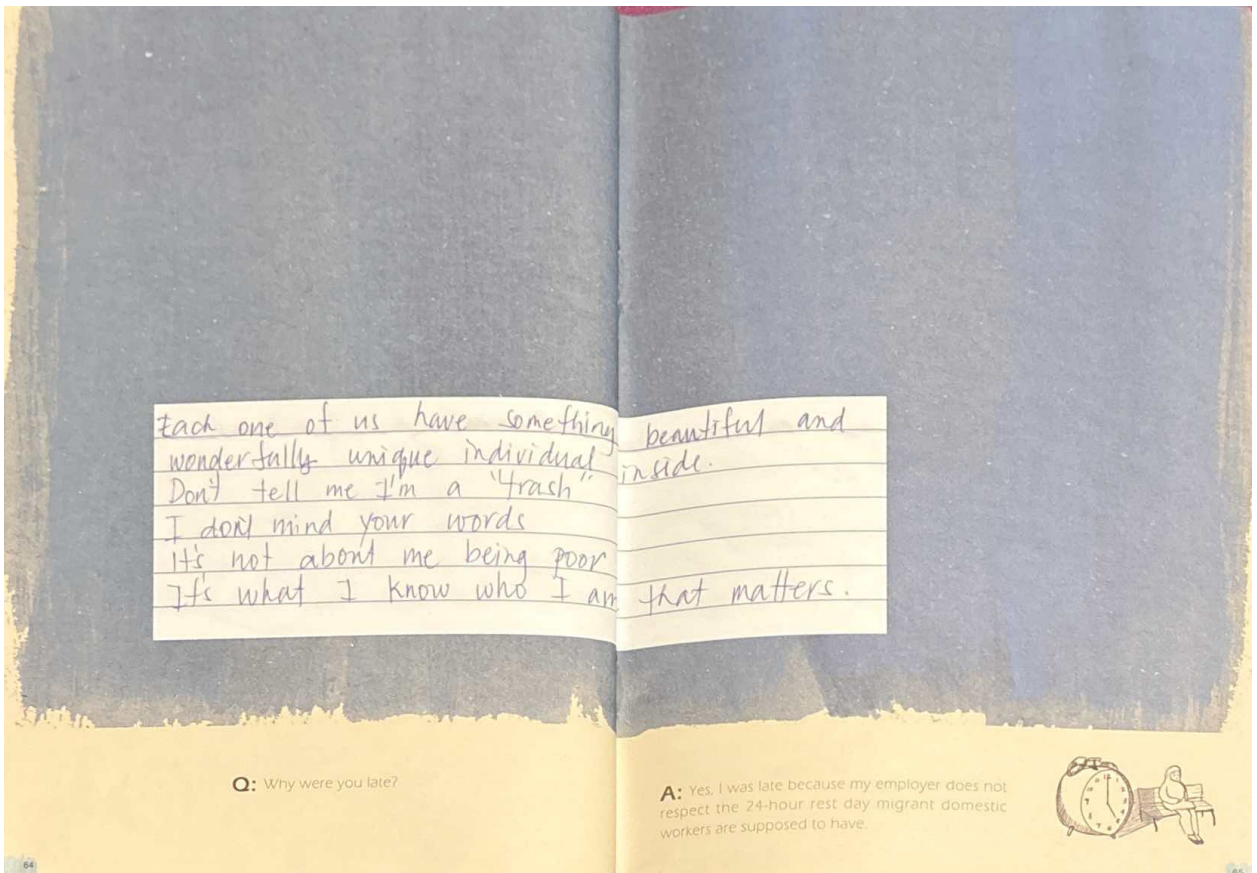 Each one of us have something beautiful and
wonderfully unique individual inside.
Don't tell me I'm a "trash"
I don't mind your words
It's not about me being poor
It's what I know who I am that matters.
Q: Why were you late?
A: Yes, I was late because my employer does not
respect the 24-hour rest day migrant domestic
workers are supposed to have.
64
65